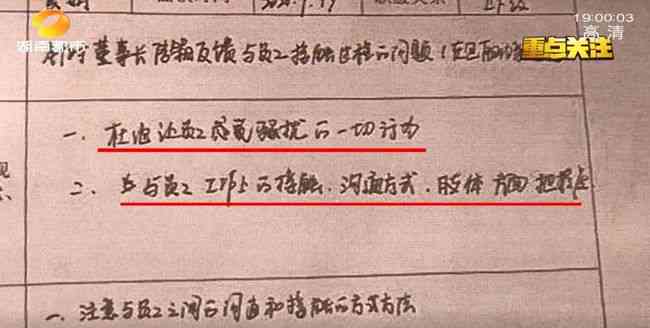 湖南都市
19:00:03
高清
重点关注
董事长陈 反馈与员工接触过程的问题
一、杜绝让员工感觉骚扰的一切行为
二、与员工工作上的接触、沟通方式、肢体方面把
一、注意与员工之间的沟通和接触的方式方法